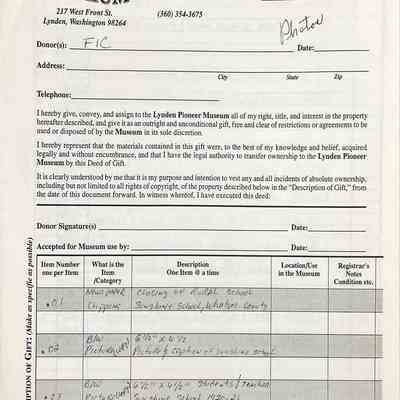 217 West Front St.
Lynden, Washington 98264
(360) 354-3675
Photos
Donor(s): FIC
Date:
Address:
City State Zip
Telephone:
I hereby give, convey, and assign to the Lynden Pioneer Museum all of my right, title, and interest in the property
hereafter described, and give it as an outright and unconditional gift, free and clear of restrictions or agreements to be
used or disposed of by the Museum in its sole discretion.
I hereby represent that the materials contained in this gift were, to the best of my knowledge and belief, acquired
legally and without encumbrance, and that I have the legal authority to transfer ownership to the Lynden Pioneer
Museum by this Deed of Gift.
It is clearly understood by me that it is my purpose and intention to vest any and all incidents of absolute ownership,
including but not limited to all rights of copyright, of the property described below in the "Description of Gift," from
the date of this document forward. In witness whereof, I have executed this deed:
Donor Signature(s) Date:
Accepted for Museum use by: Date:
Item Number one per Item
What is the Item /Category
Description One Item @ a time
Location/Use in the Museum
Registrar's Notes Condition etc.
.01 Newspaper Closing of Rural School
Clipping Sunshine School, Whatcom County
.02 B/W 6½" x 4½
Picture & Caption of Sunshine School
.03 B/W 6½" x 4½" Students/Teacher
Sunshine School 1920-21
OF GIFT: (Make as specific as possible)